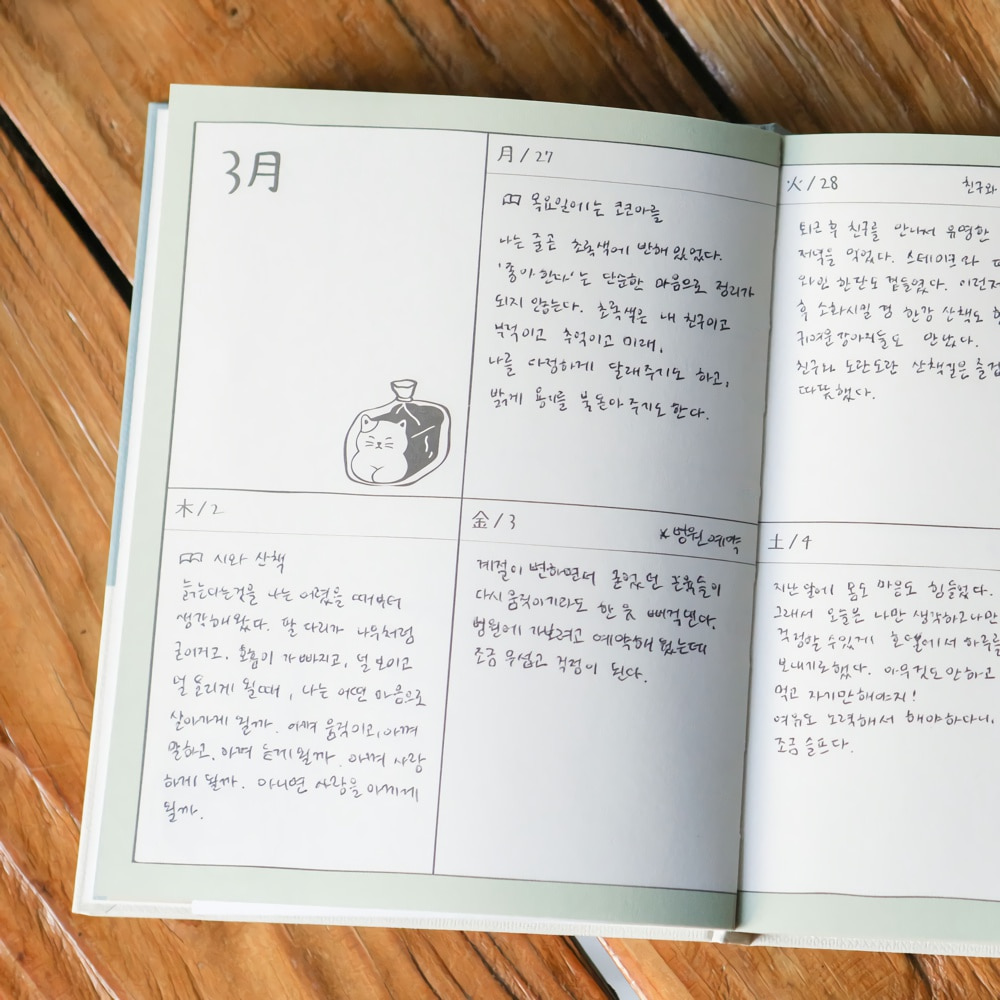 3月
月/27
목요일에는 코코아를
나는 줄곧 초록색에 반해 있었다.
'좋아한다'는 단순한 마음으로 정리가
되지 않는다. 초록색은 내 친구이고
부적이고 추억이고 미래,
나를 다정하게 달래주기도 하고,
밝게 용기를 북돋아 주기도 한다.
火/28 친구와
퇴근 후 친구를 만나서 유명한
저녁을 먹었다. 스테이크와
와인 한잔도 곁들였다. 이런저
후 소화시킬 겸 한강 산책도
귀여운 강아지들도 만났다.
친구와 도란도란 산책길은 즐겁
따뜻했다.
木/2
시와 산책
늙는다는 것을 나는 어렸을 때부터
생각해왔다. 팔 다리가 나무처럼
굳어지고, 호흡이 가빠지고, 덜 보이고
덜 들리게 될 때, 나는 어떤 마음으로
살아가게 될까. 아껴 움직이고, 아껴
말하고, 아껴 듣게 될까. 아껴 사랑
하게 될까. 아니면 사랑을 아끼게
될까.
金/3 *병원 예약
계절이 변하면서 굳었던 근육들이
다시 움직이기라도 한 듯 삐걱댄다.
병원에 가보려고 예약해 뒀는데
조금 무섭고 걱정이 된다.
土/4
지난 달에 몸도 마음도 힘들었다.
그래서 오늘은 나만 생각하고 나만
걱정할 수 있게 혼자 에서 하루를
보내기로 했다. 아무것도 안하고
먹고 자기만 해야지!
여유도 노력해서 해야하다니,
조금 슬프다.